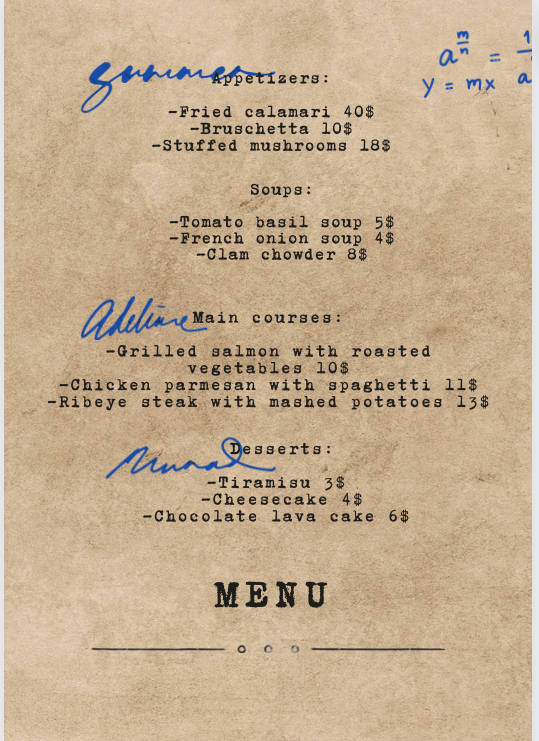 summer
Appetizers:
a^(m/n) = 1
y = mx a
-Fried calamari 40$
-Bruschetta 10$
-Stuffed mushrooms 18$
Soups:
-Tomato basil soup 5$
-French onion soup 4$
-Clam chowder 8$
Adeline
Main courses:
-Grilled salmon with roasted
vegetables 10$
-Chicken parmesan with spaghetti 11$
-Ribeye steak with mashed potatoes 13$
Desserts:
-Tiramisu 3$
-Cheesecake 4$
-Chocolate lava cake 6$
MENU